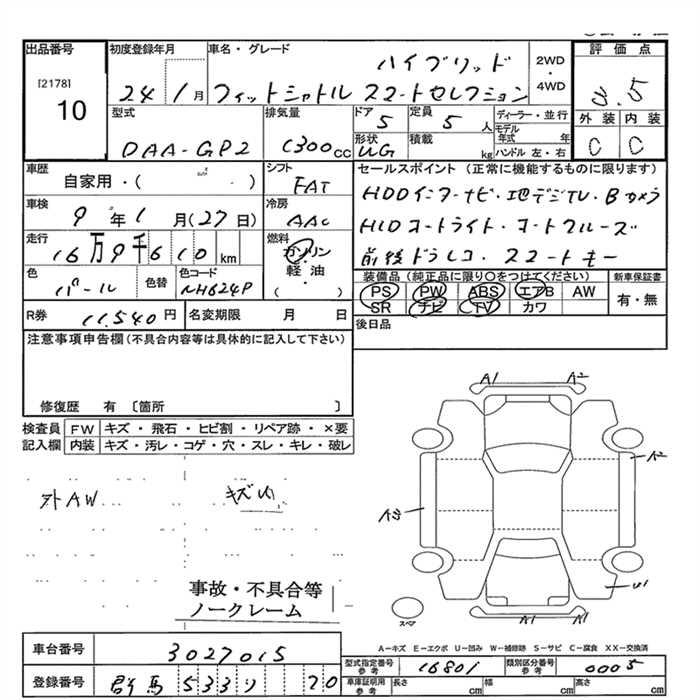 出品番号
[2178]
10
初度登録年月
24年1月
車名・グレード
ハイブリッド
フィットシャトル スマートセレクション
2WD
・
4WD
評価点
3.5
外装 内装
C C
型式
DAA-GP2
排気量
1300cc
ドア
5
定員
5人
形状
WG
積載
kg
ディーラー・並行
モデル
年式 年
ハンドル 左・右
車歴
自家用・( )
シフト
FAT
車検
9年1月(27日)
冷房
AAC
走行
16万9千610km
燃料
ガソリン
・
軽油
( )
色
パール
色替
色コード
NH624P
セールスポイント (正常に機能するものに限ります)
HDDインターナビ・地デジTV・Bカメラ
HIDオートライト・オートクルーズ
前後ドラレコ・スマートキー
装備品(純正品に限り○をつけてください)
PS PW ABS エアB AW
SR ナビ TV カワ
新車保証書
有・無
R券
11,540円
名変期限 月 日
後日品
注意事項申告欄(不具合内容等は具体的に記入して下さい)
修復歴 有 〔箇所 〕
検査員 FW キズ・飛石・ヒビ割・リペア跡・×要
記入欄 内装 キズ・汚レ・コゲ・穴・スレ・キレ・破レ
外AW キズ
事故・不具合等
ノークレーム
A1 A2
A2
A3
U1
A1 A1
スペア
A-キズ E-エクボ U-凹み W-補修跡 S-サビ C-腐食 XX-交換済
車台番号
3027015
登録番号
群馬 533 り 20
型式指定番号
参考
16801
類別区分番号
参考
0005
車庫証明用
参考
長さ cm
幅 cm
高さ cm